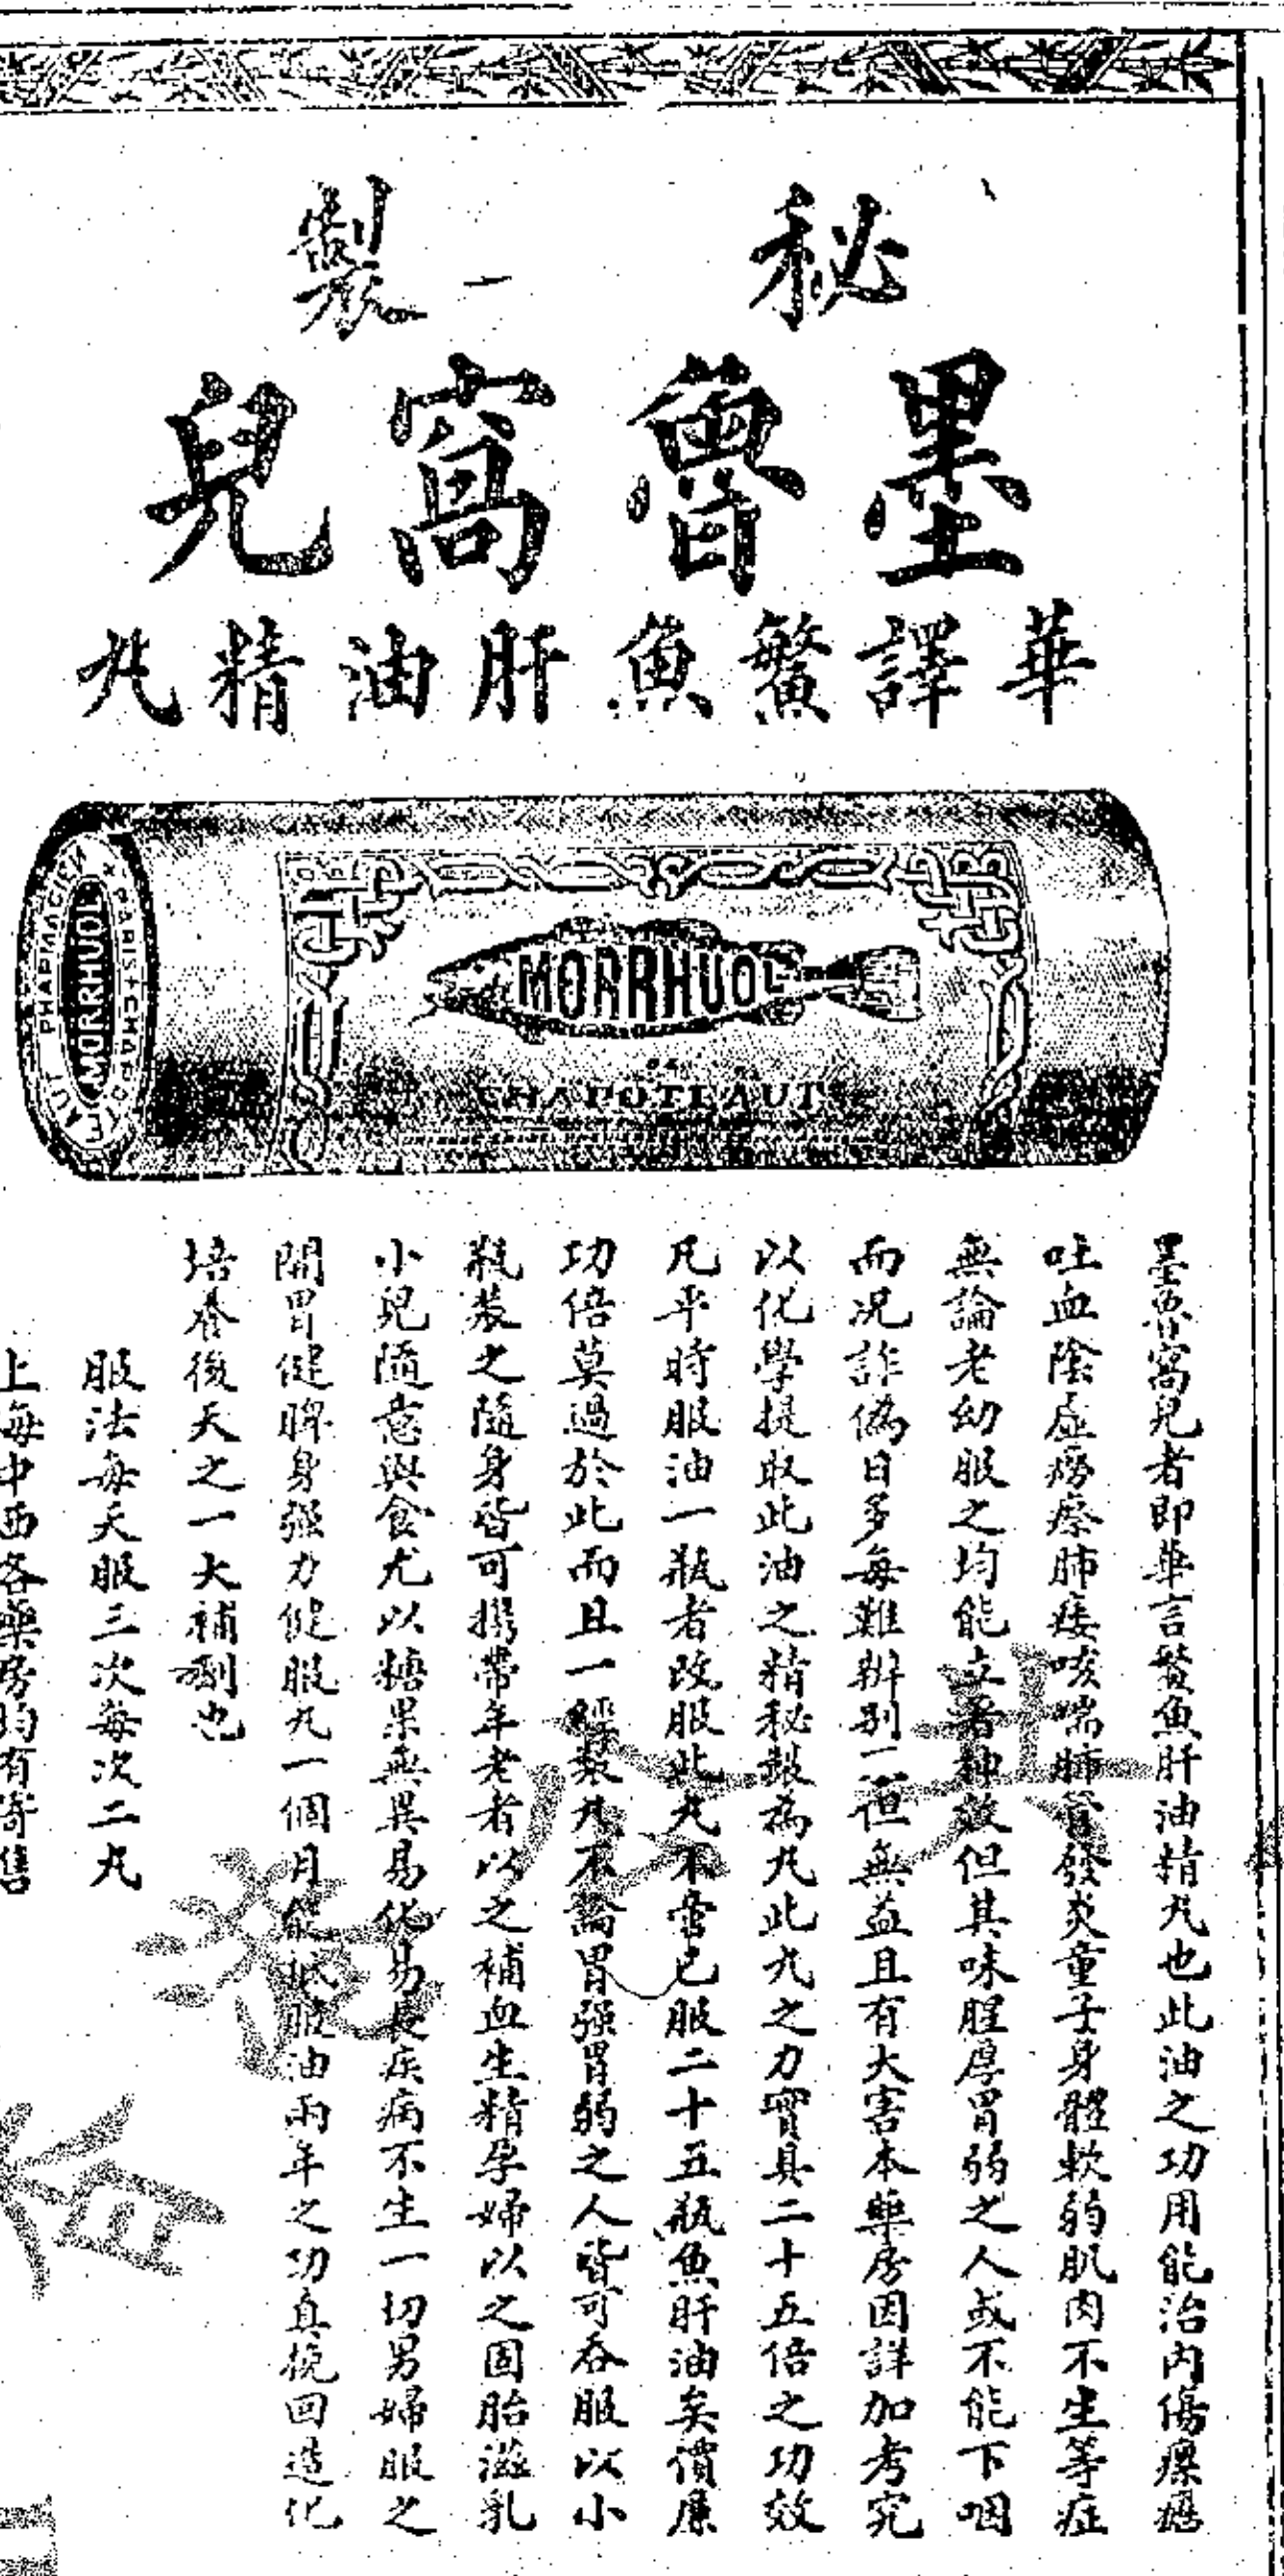 秘製
墨魯窩兒
華譯鰵魚肝油精丸
PHARMACIEN
PARIS
MORRHUOL
MORRHUOL
CHAPOTEAUT
墨魯窩兒者即華言鰵魚肝油精丸也此油之功用能治內傷瘰癧
吐血陰虛癆瘵肺痿咳喘肺管發炎童子身體軟弱肌肉不生等症
無論老幼服之均能立著神效但其味腥厚胃弱之人或不能下咽
而况詐偽日多每難辨別不但無益且有大害本藥房因詳加考究
以化學提取此油之精秘製為丸此丸之力實具二十五倍之功效
凡平時服油一瓶者改服此丸不啻已服二十五瓶魚肝油矣價廉
功倍莫過於此而且一經製丸不論胃强胃弱之人皆可吞服以小
瓶裝之隨身皆可携帶年老者以之補血生精孕婦以之固胎滋乳
小兒隨意與食尤以糖果無異易化易長疾病不生一切男婦服之
開胃健脾身强力健服丸一個月能抵服油兩年之功真挽回造化
培養後天之一大補劑也
服法每天服三次每次二丸
上海中西各藥房均有寄售